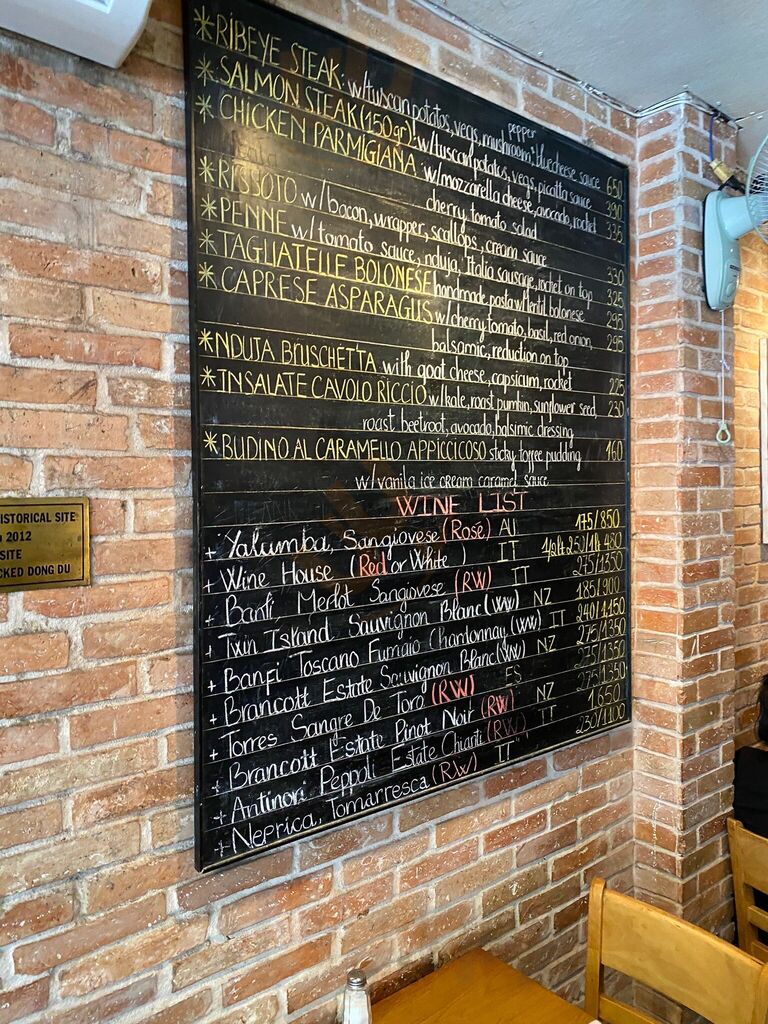 pepper
*RIBEYE STEAK: w/tuscan potatos, vegs, mushroom, bluecheese sauce 650
*SALMON STEAK (150gr): w/tuscan potatos, vegs, picatta sauce 390
*CHICKEN PARMIGIANA w/mozzarella cheese, avocado, rocket 335
cherry, tomato salad
*RISSOTO w/bacon, wrapper, scallops, cream sauce 330
*PENNE w/tomato sauce, nduja, Italia sausage, rocket on top 325
*TAGLIATELLE BOLONESE handmade pasta w/lentil bolonese 295
*CAPRESE ASPARAGUS w/cherry tomato, basil, red onion, 295
balsamic, reduction on top
*NDUJA BRUSCHETTA with goat cheese, capsicum, rocket 225
*INSALATE CAVOLO RICCIO w/kale, roast pumkin, sunflower seed 230
roast beetroot, avocado, balsimic dressing
*BUDINO AL CARAMELLO APPICCICOSO sticky toffee pudding 160
w/vanila ice cream caramel sauce
WINE LIST
+ Yalumba, Sangiovese (Rosé) AU 175/850
+ Wine House (Red or White) IT 1/2lt 250/1lt 480
+ Banfi, Merlot Sangiovese (RW) IT 275/1350
+ Twin Island Sauvignon Blanc (WW) NZ 185/900
+ Banfi Toscano Fumaio Chardonnay (WW) IT 240/1150
+ Brancott Estate Sauvignon Blanc (WW) NZ 275/1350
+ Torres Sangre De Toro (RW) ES 275/1350
+ Brancott Estate Pinot Noir (RW) NZ 275/1350
+ Antinori Peppoli Estate Chianti (RW) IT 1,650
+ Neprica, Tomarresca (RW) IT 230/1100
ISTORICAL SITE
2012
SITE
CKED DONG DU